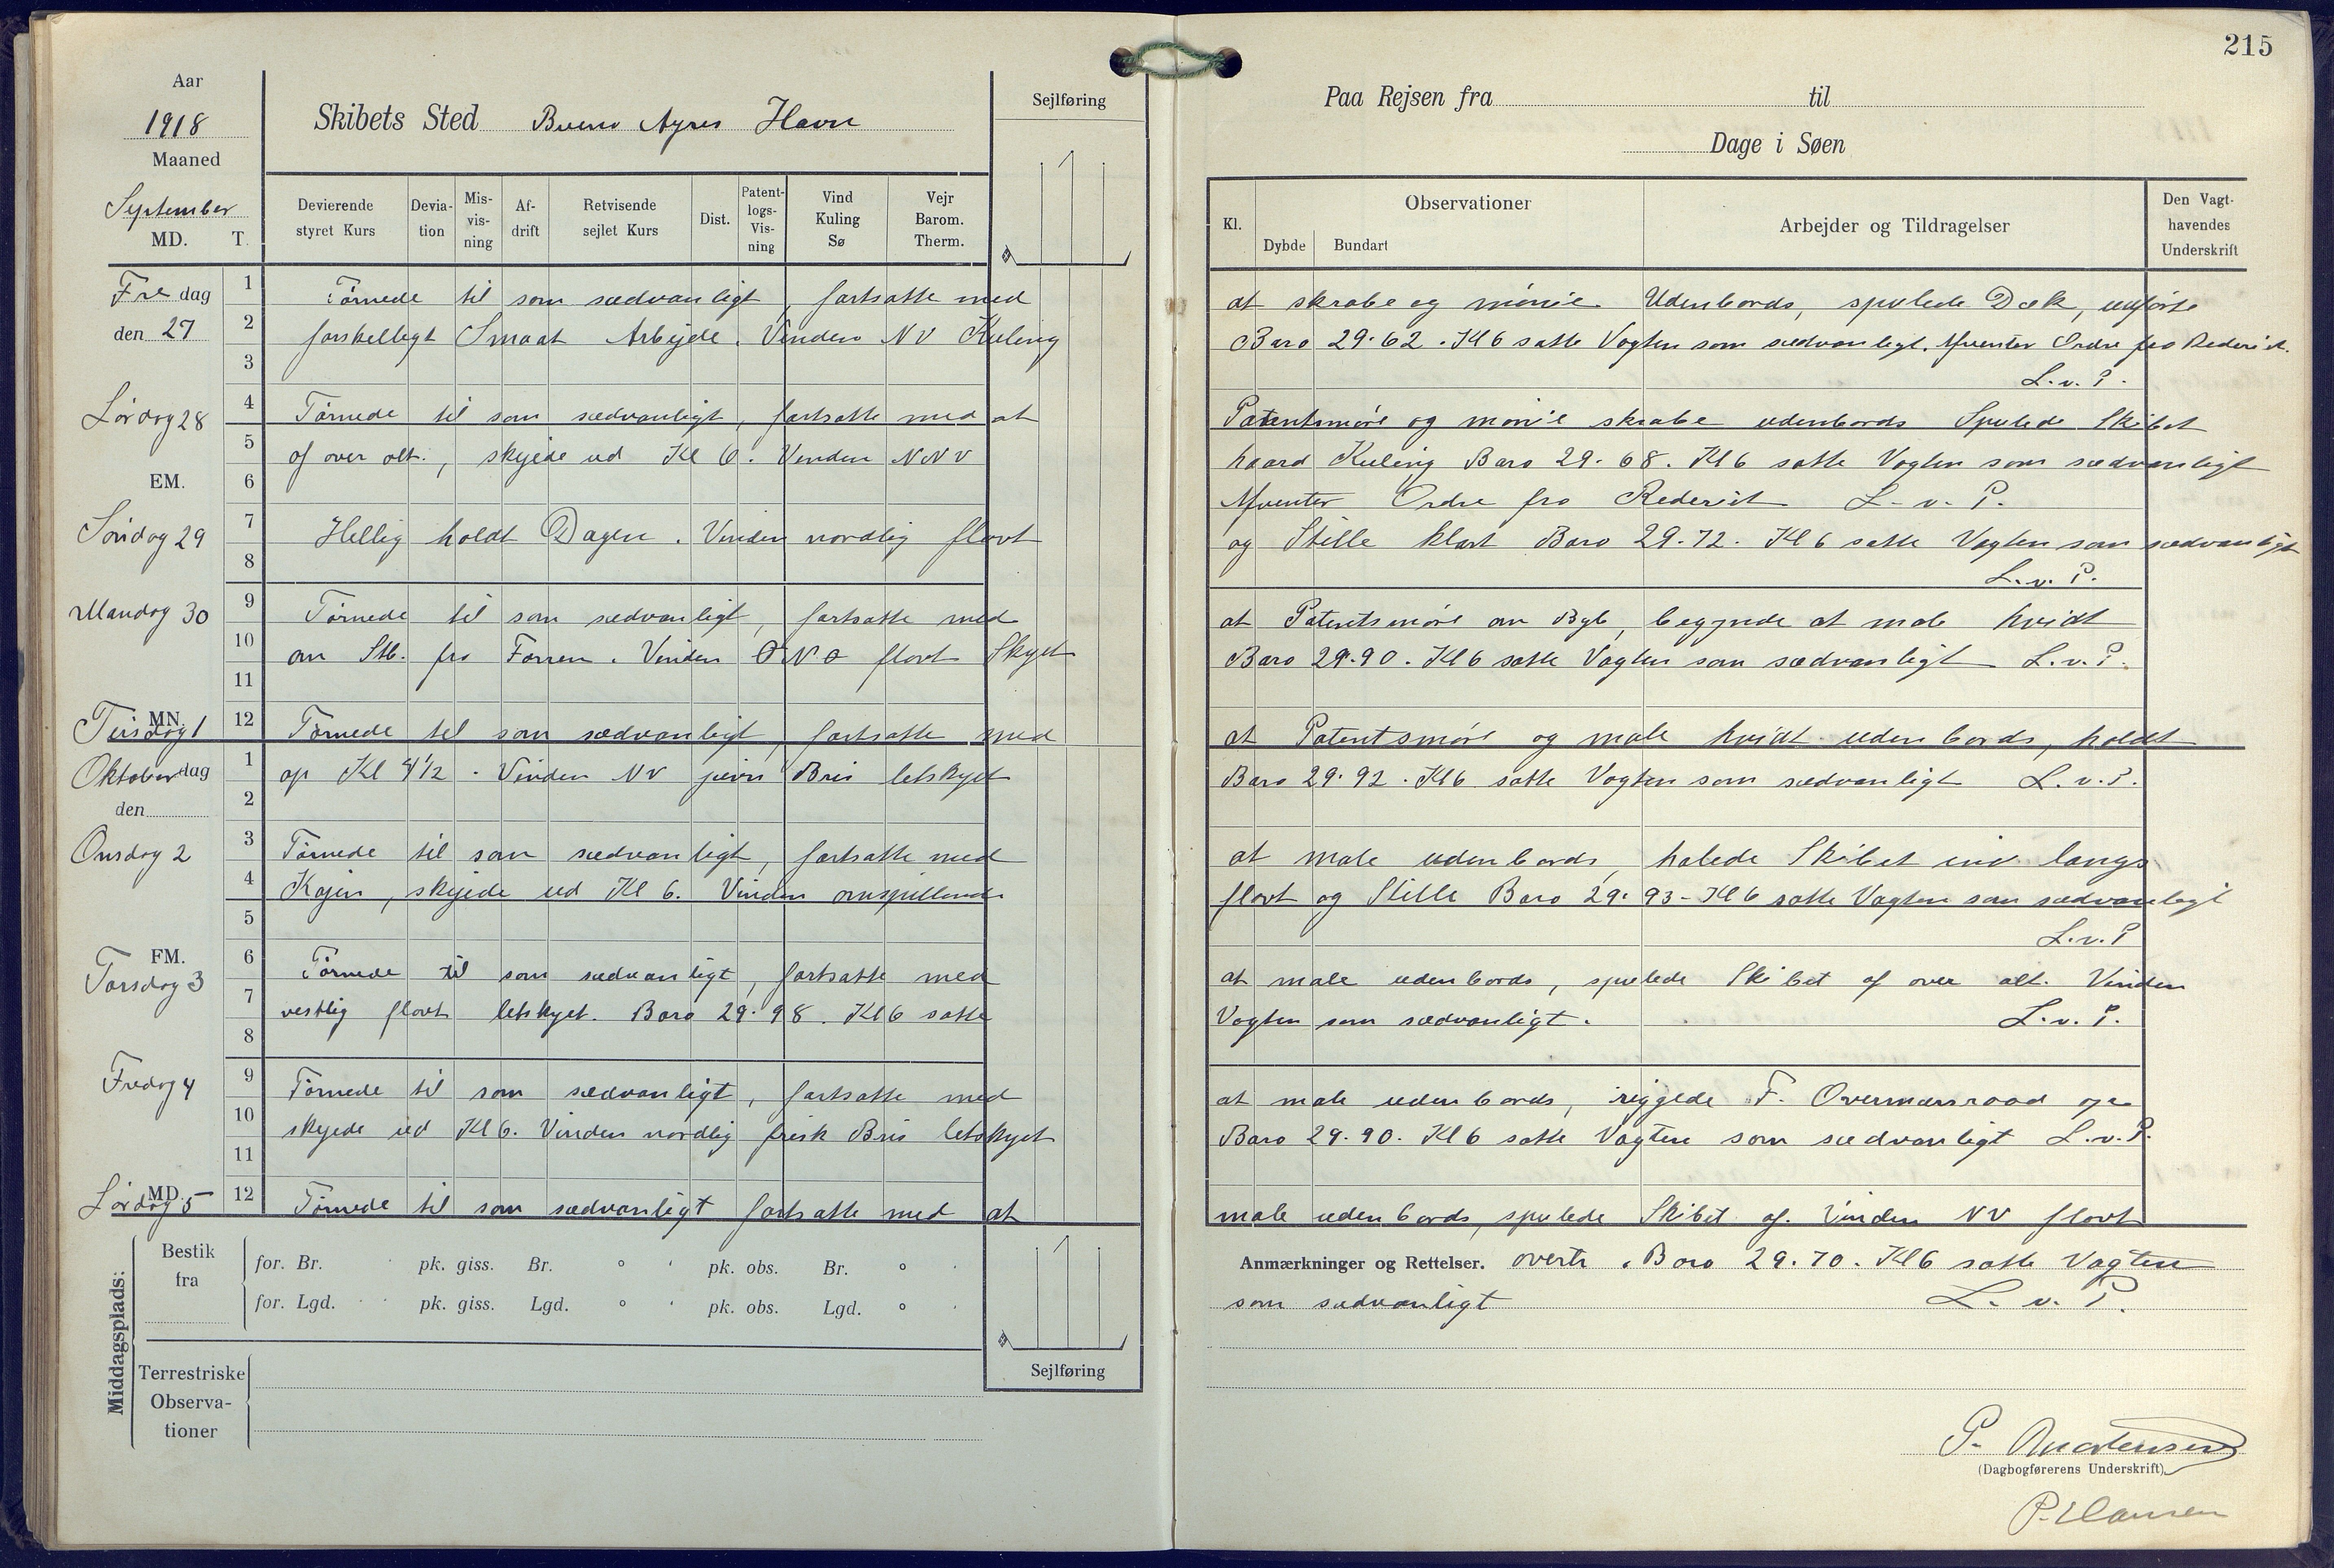 215
Aar
1918
Maaned
September
MD. T.
Skibets Sted Bueno Ayres Havn
Sejlføring
Paa Rejsen fra til
Dage i Søen
Devierende styret Kurs
Devia-tion
Mis-vis-ning
Af-drift
Retvisende sejlet Kurs
Dist.
Patent-logs-Vis-ning
Vind Kuling Sø
Vejr Barom. Therm.
Kl.
Observationer
Dybde Bundart
Arbejder og Tildragelser
Den Vagt-havendes Underskrift
Fredag den 27
1 Törnede til som sædvanligt, fortsatte med at skrabe og mönie Udenbords, spulede Dæk, udförte
2 forskelligt Smaat Arbejde. Vinden NV Kuling Baro 29.62. Kl 6 satte Vagten som sædvanligt. Afventer Ordre fra Rederiet.
3 L.v.P.
Lördag 28
4 Törnede til som sædvanligt, fortsatte med at Patentsmöre og mönie skrabe udenbords Spulede Skibet
5 af over alt., skejede ud Kl 6. Vinden NNV haard Kuling Baro 29.68. Kl 6 satte Vagten som sædvanligt
EM.
6 Afventer Ordre fra Rederiet L.v.P.
Söndag 29
7 Hellig holdt Dagen. Vinden nordlig flovt og Stille klart Baro 29.72. Kl 6 satte Vagten som sædvanligt
8 L.v.P.
Mandag 30
9 Törnede til som sædvanligt, fortsatte med at Patentsmöre om Bgb, begynde at male hvidt
10 om Stb. fra Forren. Vinden ONO flovt Skyet Baro 29.90. Kl 6 satte Vagten som sædvanligt L.v.P.
11
MN.
Tirsdag 1
12 Törnede til som sædvanligt, fortsatte med at Patentsmöre og male hvidt udenbords, holdt
Oktober dag
1 op Kl 4 1/2. Vinden NV jævn Bris letskyet Baro 29.92. Kl 6 satte Vagten som sædvanligt L.v.P.
den
2
Onsdag 2
3 Törnede til som sædvanligt, fortsatte med at male udenbords, halede Skibet ind langs
4 Kajen, skejede ud Kl 6. Vinden omspillende flovt og Stille Baro 29.93 - Kl 6 satte Vagten som sædvanligt
5 L.v.P
FM.
Torsdag 3
6 Törnede til som sædvanligt, fortsatte med at male udenbords, spulede Skibet af over alt. Vinden
7 vestlig flovt letskyet. Baro 29.98. Kl 6 satte Vagten som sædvanligt. L.v.P.
8
Fredag 4
9 Törnede til som sædvanligt, fortsatte med at male udenbords, riggede F. Overmærsraad op
10 skejede ud Kl 6. Vinden nordlig frisk Bris letskyet Baro 29.90. Kl 6 satte Vagten som sædvanligt L.v.P.
11
MD.
Lördag 5
12 Törnede til som sædvanligt fortsatte med at male udenbords, spulede Skibet af. Vinden NV flovt
Anmærkninger og Rettelser. overtr. Baro 29.70. Kl 6 satte Vagten
som sædvanligt L.v.P.
Middagsplads:
Bestik fra
for. Br. pk. giss. Br. ° ' pk. obs. Br. ° '
for. Lgd. pk. giss. Lgd. ° ' pk. obs. Lgd. ° '
Sejlføring
Terrestriske Observa-tioner
P. Mortensen
(Dagbogførerens Underskrift)
P. Hansen